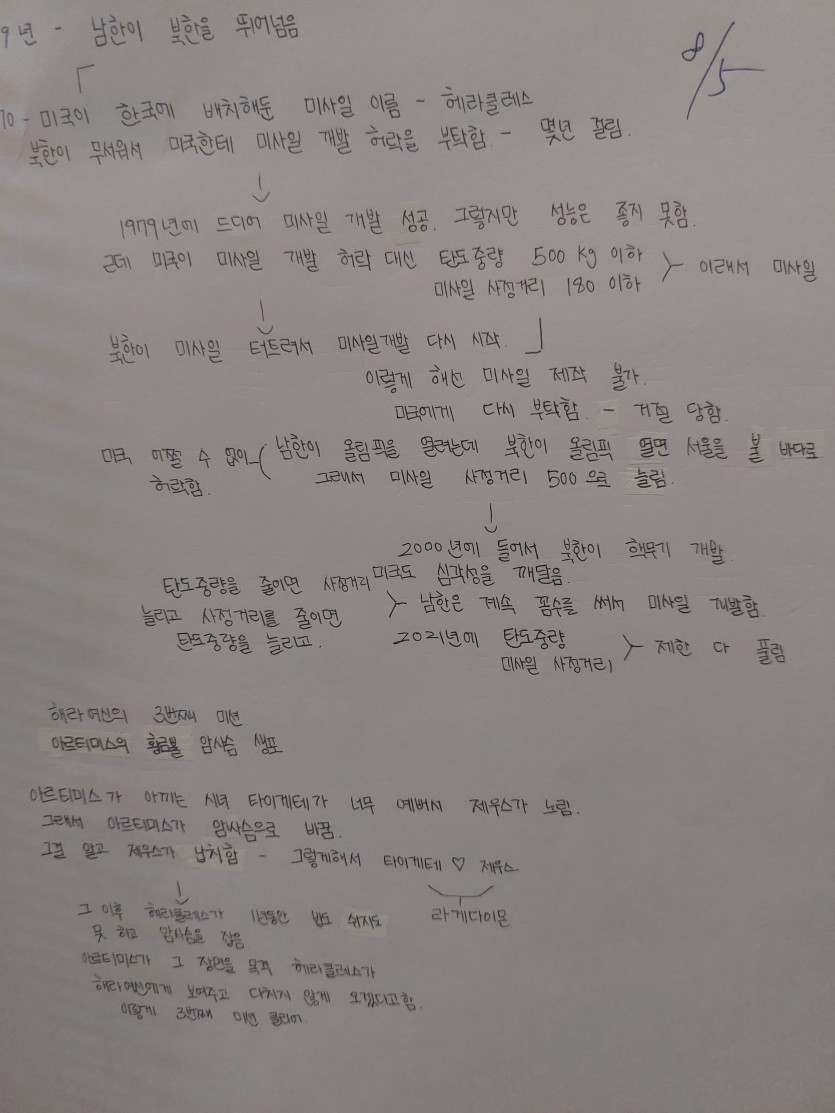 9년 - 남한이 북한을 뛰어넘음
8/5
70 - 미국이 한국에 배치해둔 미사일 이름 - 헤라클레스
북한이 무서워서 미국한테 미사일 개발 허락을 부탁함 - 몇년 걸림.
1979년에 드디어 미사일 개발 성공. 그렇지만 성능은 좋지 못함.
근데 미국이 미사일 개발 허락 대신 탄도중량 500 kg 이하
미사일 사정거리 180 이하
이래서 미사일
북한이 미사일 터트려서 미사일개발 다시 시작.
이렇게 해선 미사일 제작 불가.
미국에게 다시 부탁함. - 거절 당함.
미국 어쩔 수 없이 - ( 남한이 올림픽을 열려는데 북한이 올림픽 열면 서울을 불 바다로
허락함. 그래서 미사일 사정거리 500으로 늘림.
2000년에 들어서 북한이 핵무기 개발.
미국도 심각성을 깨달음.
탄도중량을 줄이면 사정거리
늘리고 사정거리를 줄이면
탄도중량을 늘리고.
남한은 계속 꼼수를 써서 미사일 개발함.
2021년에 탄도중량
미사일 사정거리
제한 다 풀림.
헤라여신의 3번째 미션
아르티미스의 황금뿔 암사슴 생포
아르티미스가 아끼는 시녀 타이게테가 너무 예뻐서 제우스가 노림.
그래서 아르티미스가 암사슴으로 바꿈.
그걸 알고 제우스가 납치함 - 그렇게해서 타이게테 ♡ 제우스
라케다이몬
그 이후 헤라클레스가 1년동안 밥도 쉬지도
못 하고 암사슴을 잡음
아르티미스가 그 장면을 목격 헤라클레스가
헤라여신에게 보여주고 다치지 않게 오겠다고함.
이렇게 3번째 미션 클리어.